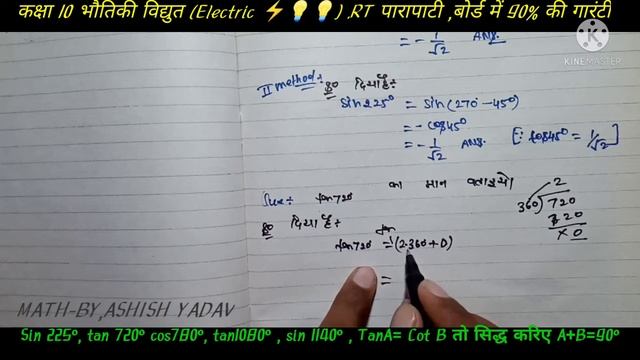 कक्षा 10 भौतिकी विद्युत (Electric ⚡💡💡) .RT पारापाटी ,बोर्ड में 90% की गारंटी
KINEMASTER
= - 1/√2 Ans.
II method :- हल दिया है :-
sin 225° = sin (270 - 45°)
= - cos 45°
= - 1/√2 Ans. [∵ cos 45° = 1/√2]
tan 720 का मान बताइये। 360) 720 2
720
× 0
हल दिया है :-
tan
tan 720 = (2.360 + 0)
=
MATH-BY,ASHISH YADAV
Sin 225°, tan 720° cos780°, tan1080° , sin 1140° , TanA= Cot B तो सिद्ध करिए A+B=90°